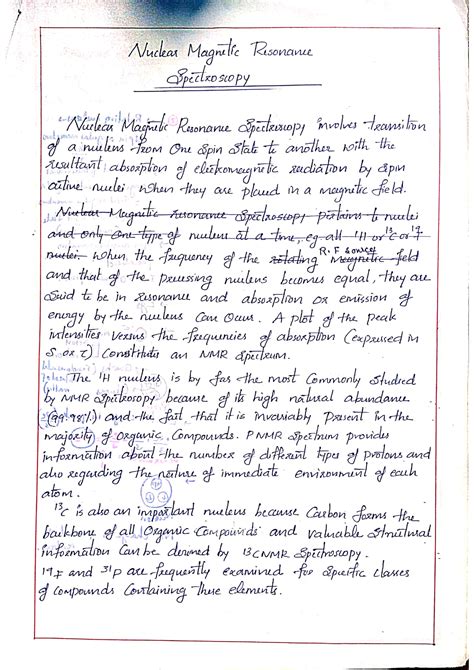 Nuclear Magnetic Resonance
Spectroscopy
Nuclear Magnetic Resonance Spectroscopy involves transition
of a nucleus from One Spin State to another with the
resultant absorption of electromagnetic radiation by spin
active nuclei when they are placed in a magnetic field.
Nuclear Magnetic resonance Spectroscopy pertains to nuclei
and only one type of nucleus at a time, eg all ¹H or ¹³C or ¹⁹F
R.F source
nuclei. when the frequency of the rotating magnetic field
and that of the precessing nucleus becomes equal, they are
said to be in resonance and absorption or emission of
energy by the nucleus can Occur. A plot of the peak
intensities versus the frequencies of absorption (expressed in
δ or τ) Constitutes an NMR spectrum.
The ¹H nucleus is by far the most Commonly studied
by NMR Spectroscopy because of its high natural abundance
(99.98%) and the fact that it is invariably present in the
majority of organic Compounds. PNMR Spectrum provides
information about the number of different types of protons and
also regarding the nature of immediate environment of each
atom.
¹³C is also an important nucleus because Carbon forms the
backbone of all Organic Compounds and valuable structural
information Can be derived by 13CNMR Spectroscopy.
19F and 31P are frequently examined for specific classes
of compounds Containing these elements.